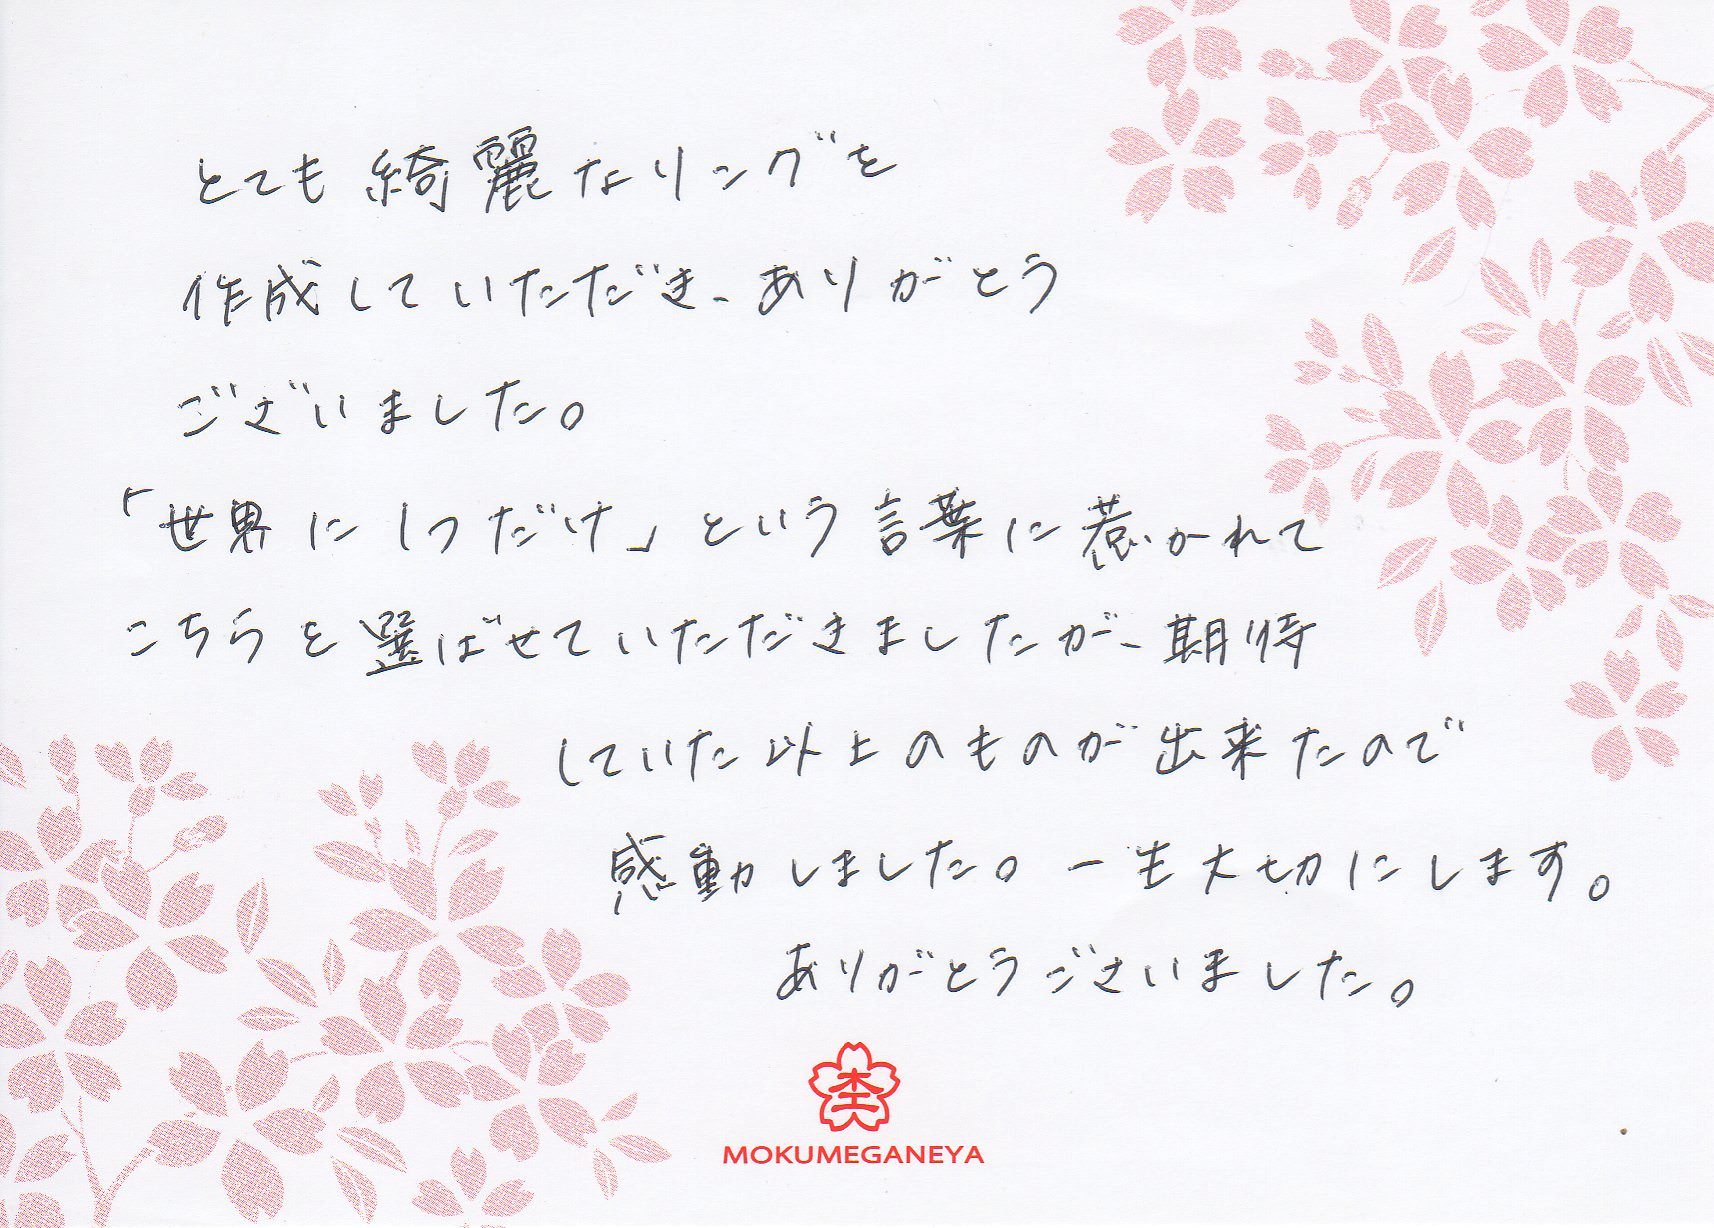 とても綺麗なリングを
作成していただき、ありがとう
ございました。
「世界に1つだけ」という言葉に惹かれて
こちらを選ばせていただきましたが、期待
していた以上のものが出来たので
感動しました。一生大切にします。
ありがとうございました。
MOKUMEGANEYA